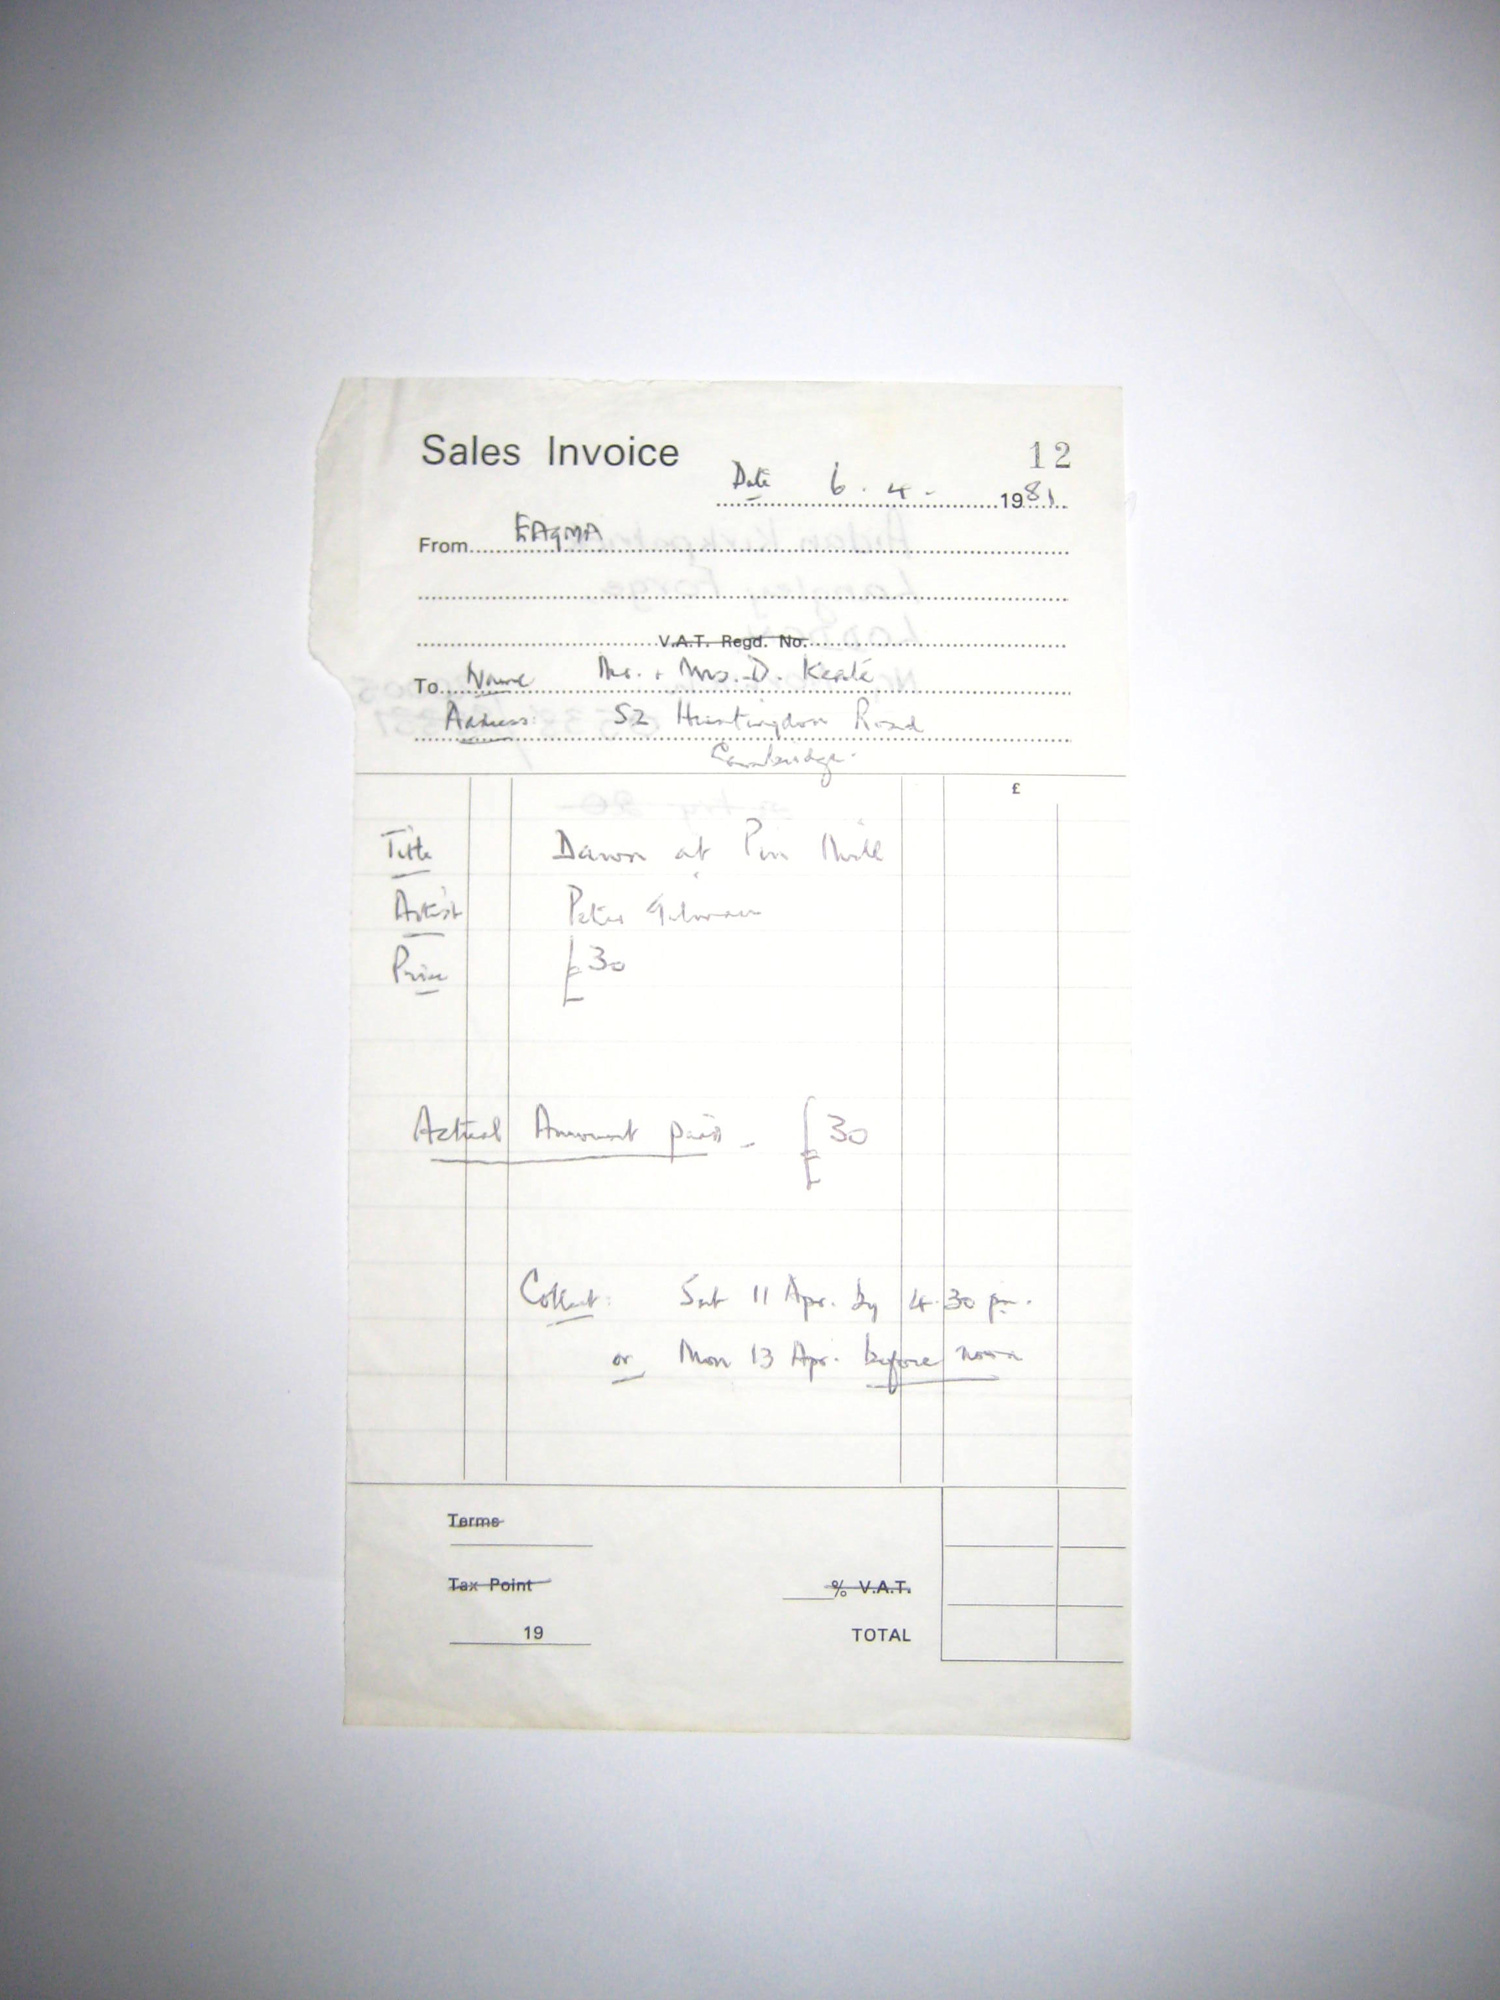 Sales Invoice 12
Date 6.4. 1981
From EAGMA
V.A.T. Regd. No.
To Name Mr. + Mrs. D. Keate
Address: 52 Huntingdon Road
Cambridge.
£
Title Dawn at Pin Mill
Artist Peter Gilman
Price £30
Actual Amount paid - £30
Collect: Sat 11 Apr. by 4.30 pm.
or Mon 13 Apr. before noon
Terms
Tax Point % V.A.T.
19 TOTAL